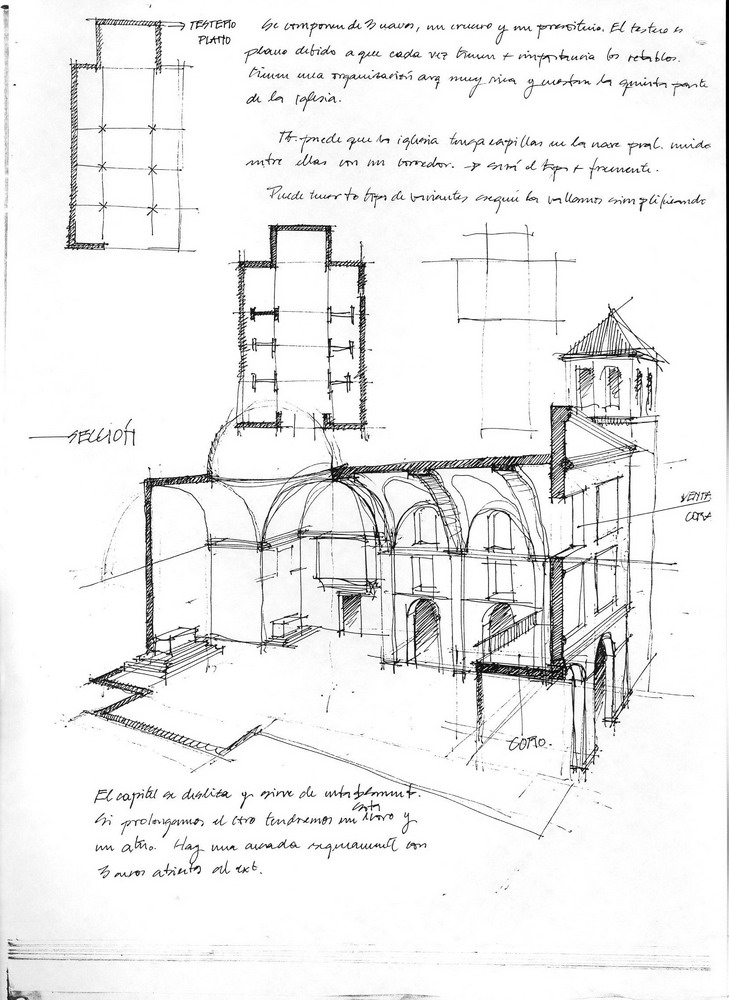 TESTERO
PLANO
Se componen de 3 naves, un crucero y un presbiterio. El testero es
plano debido a que cada vez tienen + importancia los retablos.
tienen una organización arq muy rica y muestra la quinta parte
de la iglesia.
Tb. puede que la iglesia tenga capillas en la nave pral. unida
entre ellas con un corredor. → será el tipo + frecuente.
Puede tener to tipo de variantes según las vallamos simplificando
SECCIÓN
VENTA
CORA
CORO.
El capitel se desliza y sirve de
Si prolongamos el ctro tendremos un y
un atrio. Hay una arcada con
3 arcos abiertos al ext.